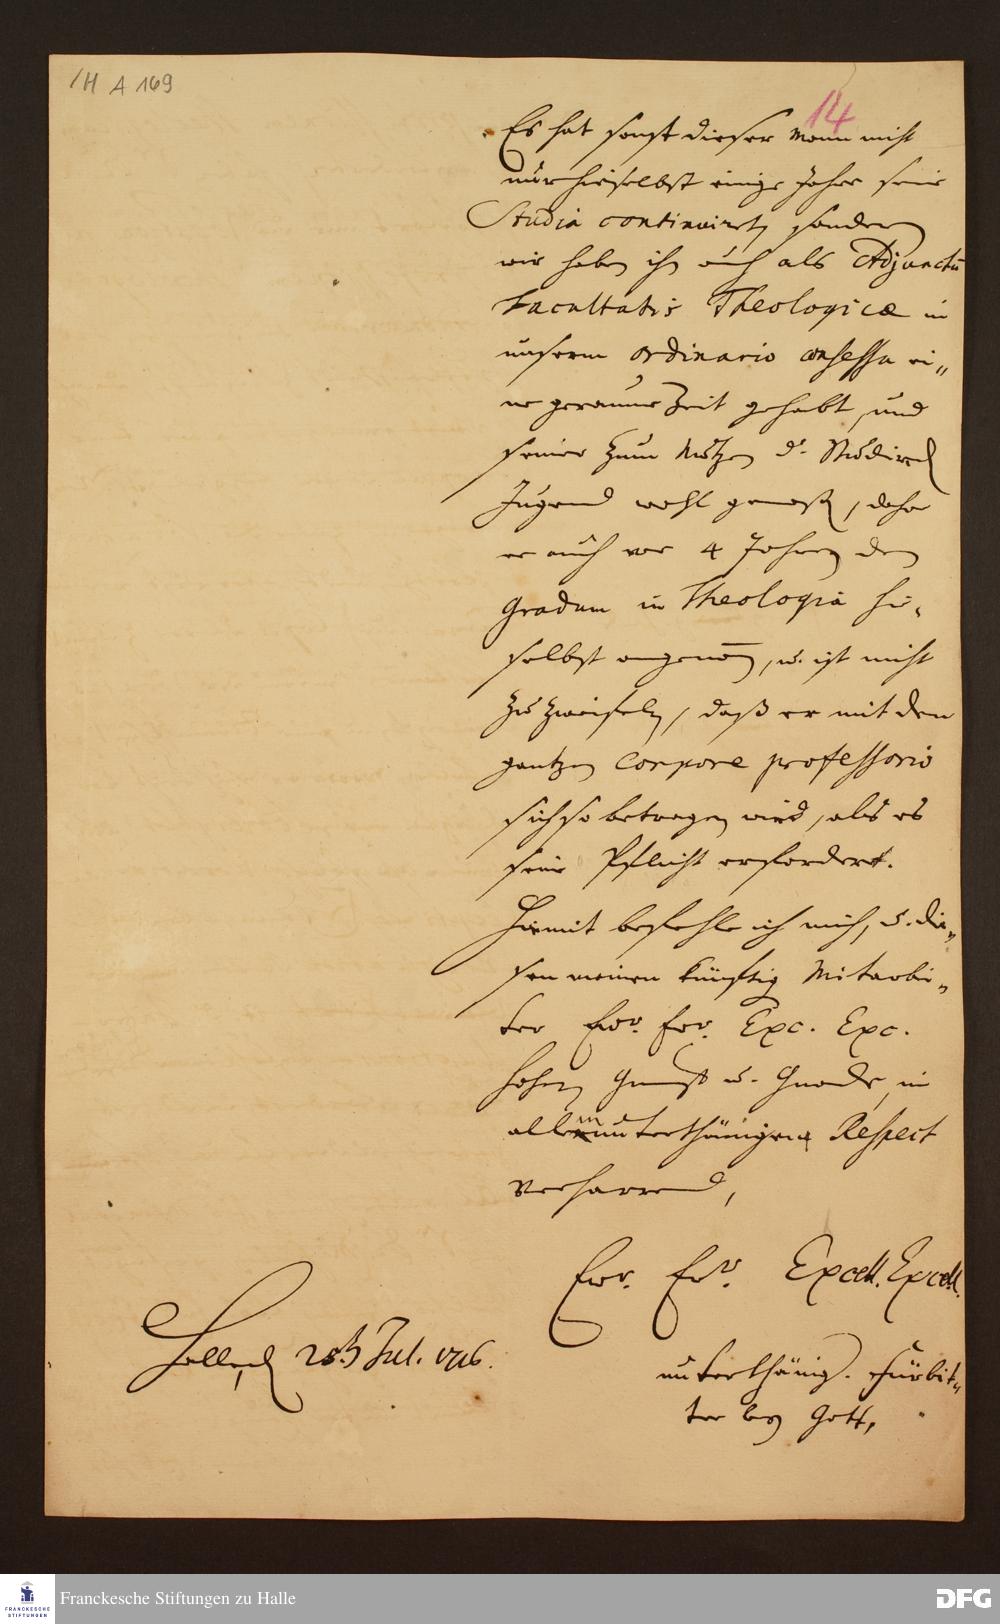 /H A 169
14
Es hat sonst dieser Mann nicht
nur hieselbst einige Jahre seine
Studia continuiret, sondern
wir haben ihn auch als Adjunctū
Facultatis Theologicæ in
unserm ordinario consessu ei„
ne geraume Zeit gehabt, und
seiner zum Nutzen d. Studirend
Jugend wohl genoßen, daher
er auch vor 4 Jahren den
Gradum in Theologia hie-
selbst angenom̄en, u. ist nicht
zu zweifeln, daß er mit dem
gantzen Corpore professorio
sich so betragen wird, als es
seine Pflicht erfordert.
Hiermit befehle ich mich, u. die„
sen meinen künftig Mitarbei„
ter Ewr. Ewr. Exc. Exc.
hohen Gunst u. Gnade, in
allem unterthänigen Respect
verharrend,
Ewr. Ewr. Excell. Excell.
Halle, d 28 Jul. 1716.
unterthänig. Fürbit„
ter bey Gott,
FRANCKESCHE
STIFTUNGEN
Franckesche Stiftungen zu Halle
DFG